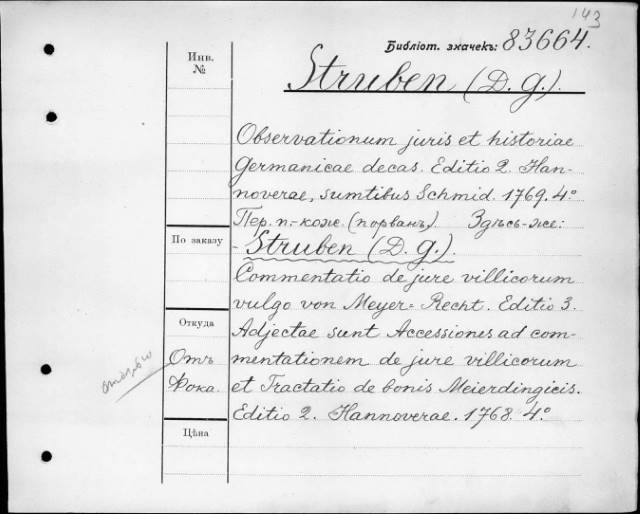 143
Библіот. значекъ: 83664.
Struben (D. G.).
Инв.
№
Observationum juris et historiae
Germanicae decas. Editio 2. Han-
noverae, sumtibus Schmid. 1769. 4°
Пер. п.-кож. (порванъ). Здѣсь-же:
По заказу
- Struben (D. G.).
Commentatio de jure villicorum
vulgo von Meyer-Recht. Editio 3.
Откуда
Adjectae sunt Accessiones ad com-
Отъ
mentationem de jure villicorum
Фока.
et Tractatio de bonis Meierdingicis.
Editio 2. Hannoverae. 1768. 4°
Цѣна